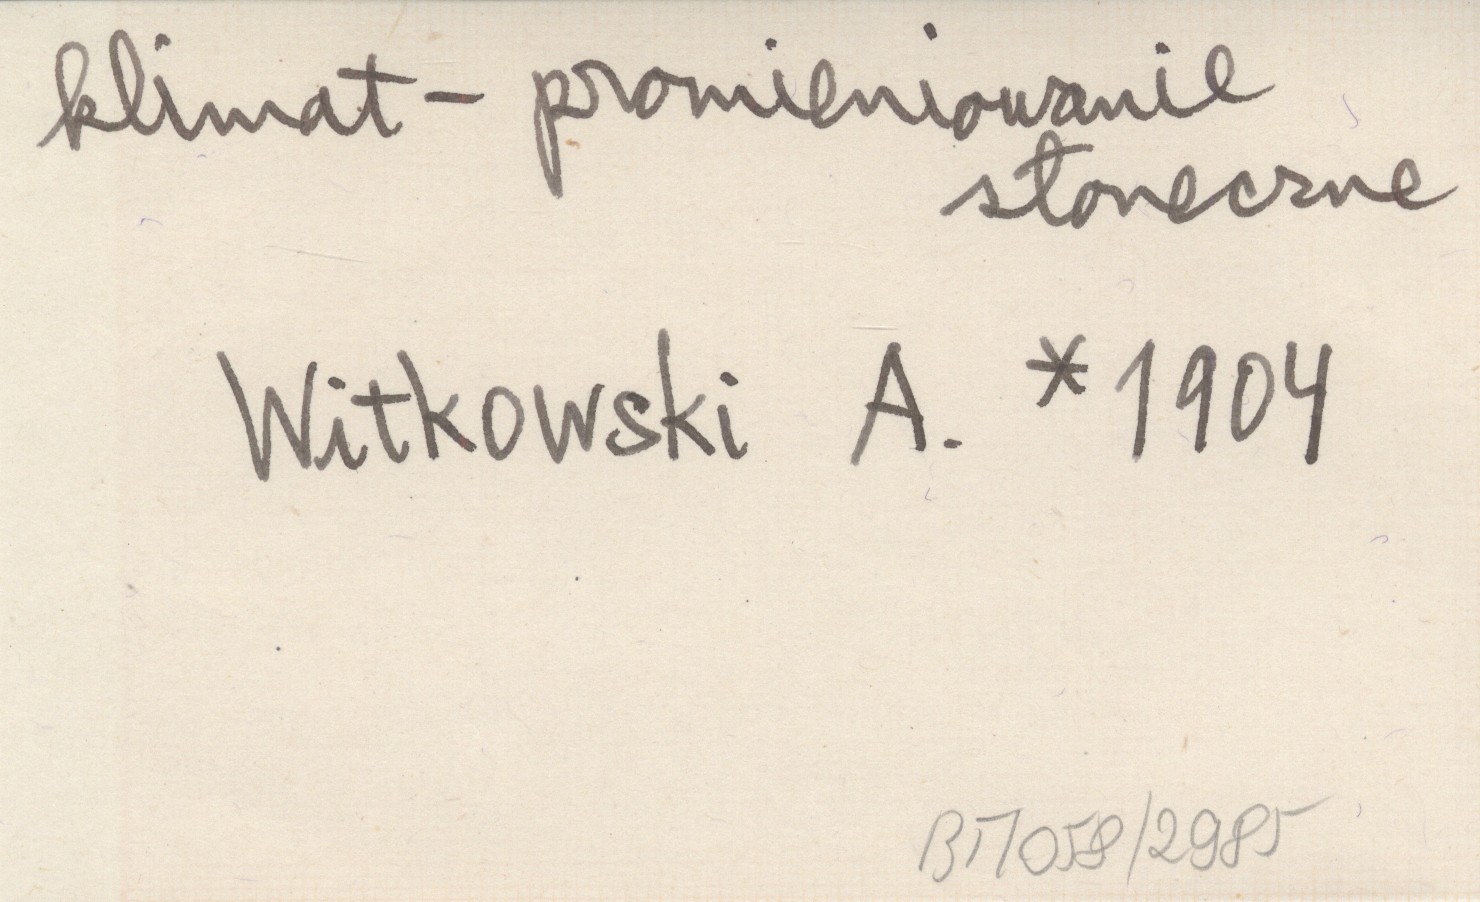 klimat - promieniowanie
słoneczne
Witkowski A. *1904
BM058/2985